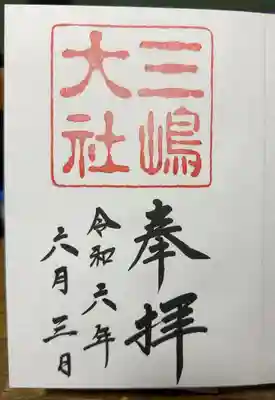 三嶋
大社
奉拝
令和六年
六月三日